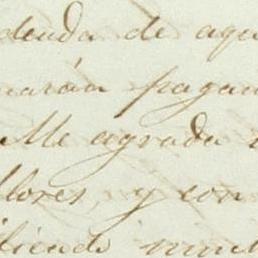 deuda de aqu
narán pagan
Me agrada
llores, y con
tiendo much